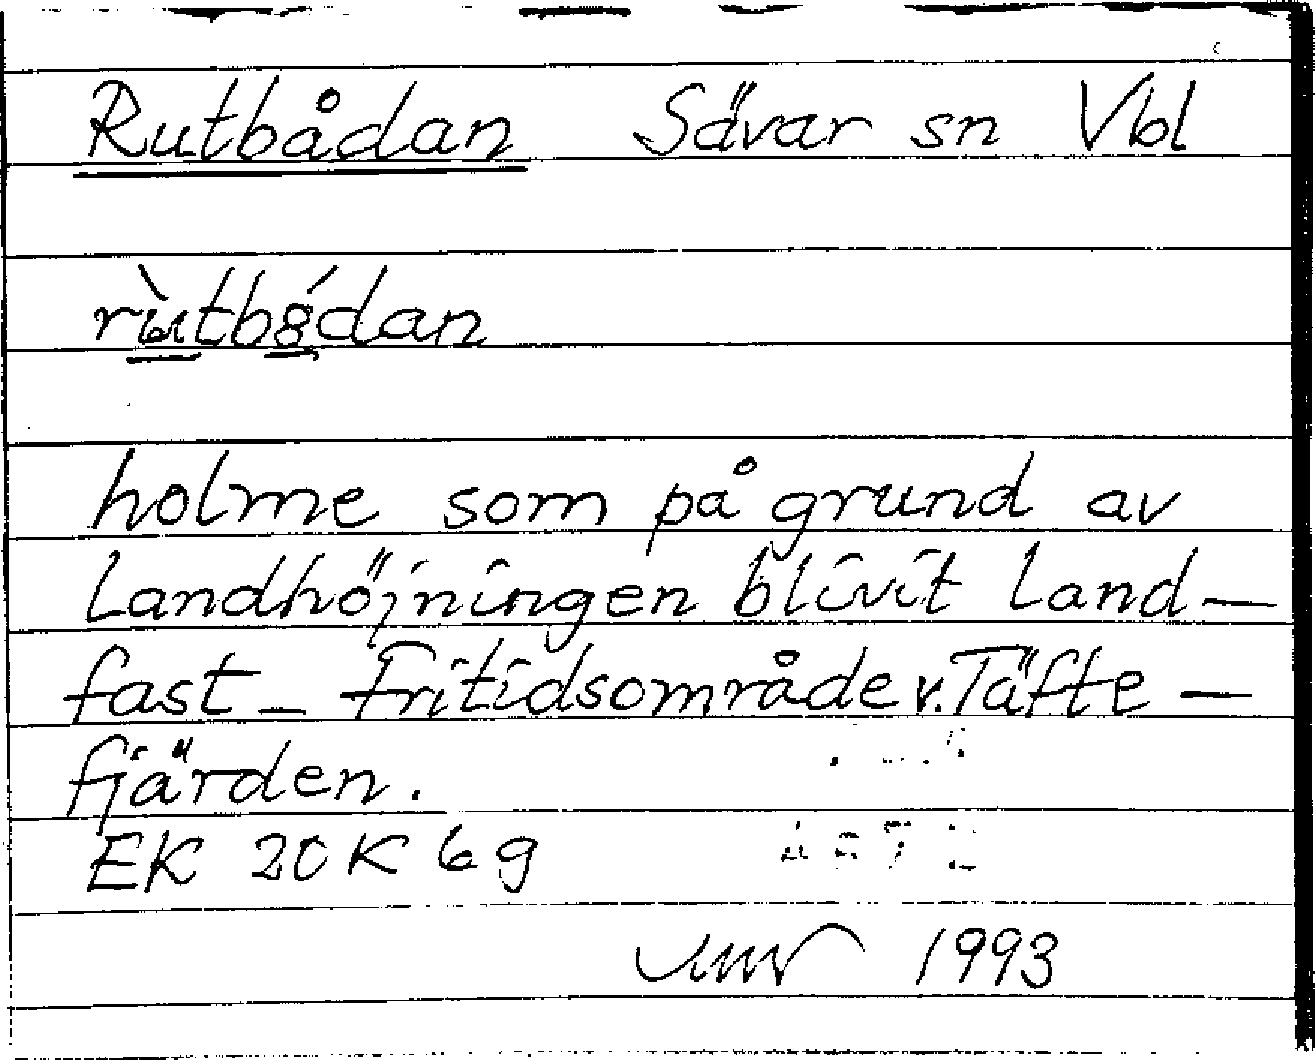 Rutbådan Sävar sn Vbl
holme som på grund av
landhöjningen blivit land-
fast - Fritidsområde v. Täfte-
fjärden.
EK 20K 6g
1993